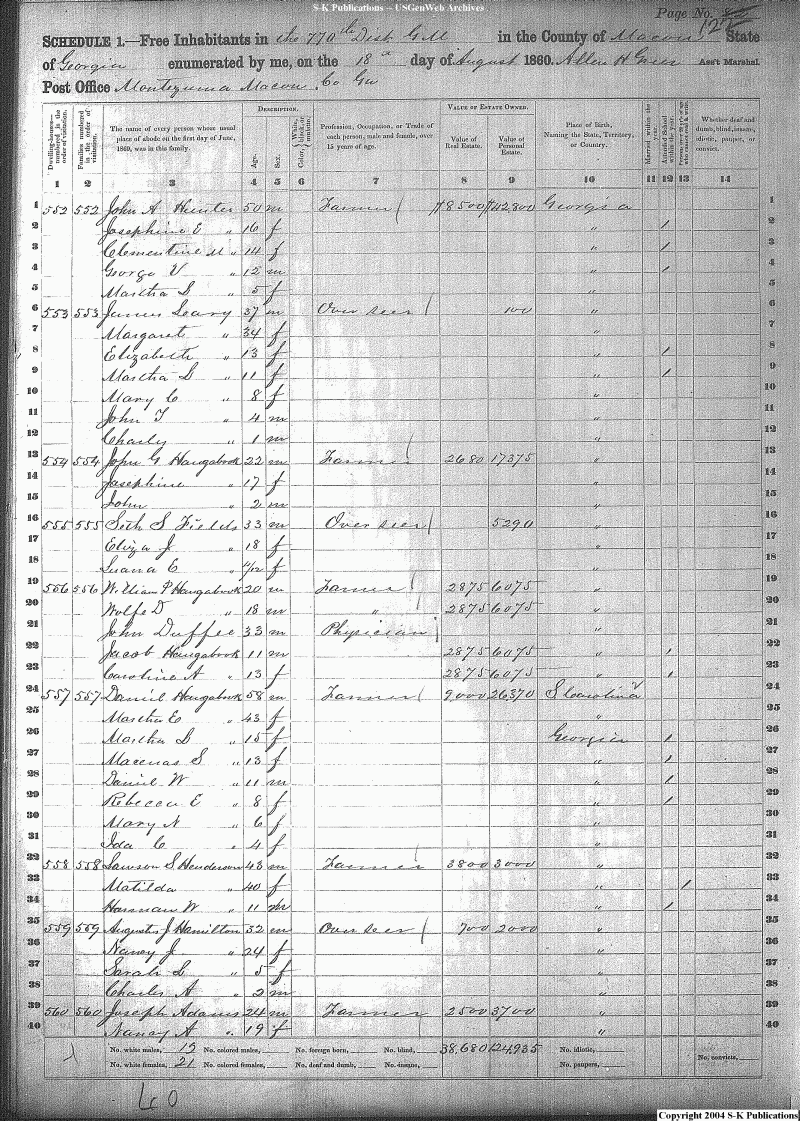 S-K Publications -- USGenWeb Archives
Page No.
SCHEDULE 1.—Free Inhabitants in the 770th Dist G M in the County of Macon State
of Georgia enumerated by me, on the 18 day of August 1860. Allen H Greer Ass't Marshal.
Post Office Montezuma Macon Co Ga
Dwelling-houses—numbered in the order of visitation. Families numbered in the order of visitation. The name of every person whose usual place of abode on the first day of June, 1860, was in this family. DESCRIPTION. Age. Sex. Color, White, black, or mulatto. Profession, Occupation, or Trade of each person, male and female, over 15 years of age. VALUE OF ESTATE OWNED. Value of Real Estate. Value of Personal Estate. Place of Birth, Naming the State, Territory, or Country. Married within the year. Attended School within the year. Whether deaf and dumb, blind, insane, idiotic, pauper, or convict.
1 2 3 4 5 6 7 8 9 10 11 12 13 14
1 552 552 John A Hunter 50 m Farmer 8500 42800 Georgia 1
2 Josephine E " 16 f " 1 2
3 Clementine M " 14 f " 1 3
4 George V " 12 m " 1 4
5 Martha S " 5 f " 5
6 553 553 James Seary 37 m Over seer 100 " 6
7 Margaret " 34 f " 7
8 Elizabeth " 13 f " 1 8
9 Martha L " 11 f " 1 9
10 Mary C " 8 f " 10
11 John T " 4 m " 11
12 Charly " 1 m " 12
13 554 554 John G Haugabook 22 m Farmer 2680 17375 " 13
14 Josephine " 17 f " 14
15 John " 2 m " 15
16 555 555 Seth S Fields 33 m Over seer 5290 " 16
17 Eliza J " 18 f " 17
18 Luana C " /12 f " 18
19 556 556 William P Haugabook 20 m Farmer 2875 6075 " 19
20 Wolfe D " 18 m " 2875 6075 " 20
21 John Duffee 33 m Physician " 21
22 Jacob Haugabook 11 m 2875 6075 " 1 22
23 Caroline A " 13 f 2875 6075 " 1 23
24 557 557 Daniel Haugabook 58 m Farmer 9,000 26370 S Carolina 24
25 Martha E " 43 f " 25
26 Martha L " 15 f Georgia 1 26
27 Macenas S " 13 f " 1 27
28 Daniel W " 11 m " 1 28
29 Rebecca E " 8 f " 1 29
30 Mary N " 6 f " 30
31 Ida C " 4 f " 31
32 558 558 Lawson S Henderson 43 m Farmer 3800 3000 " 32
33 Matilda " 40 f " 1 33
34 Harman W " 11 m " 1 34
35 559 559 Augustus J Hamilton 32 m Over seer 700 2000 " 35
36 Nancy J " 24 f " 36
37 Sarah L " 5 f " 37
38 Charles A " 2 m " 38
39 560 560 Joseph Adams 24 m Farmer 2500 3700 " 39
40 Nancy A " 19 f " 40
No. white males, 19 No. colored males, No. foreign born, No. blind, 38,680 124,935 No. idiotic,
No. white females, 21 No. colored females, No. deaf and dumb, No. insane, No. paupers, No. convicts,
40
Copyright 2004 S-K Publications